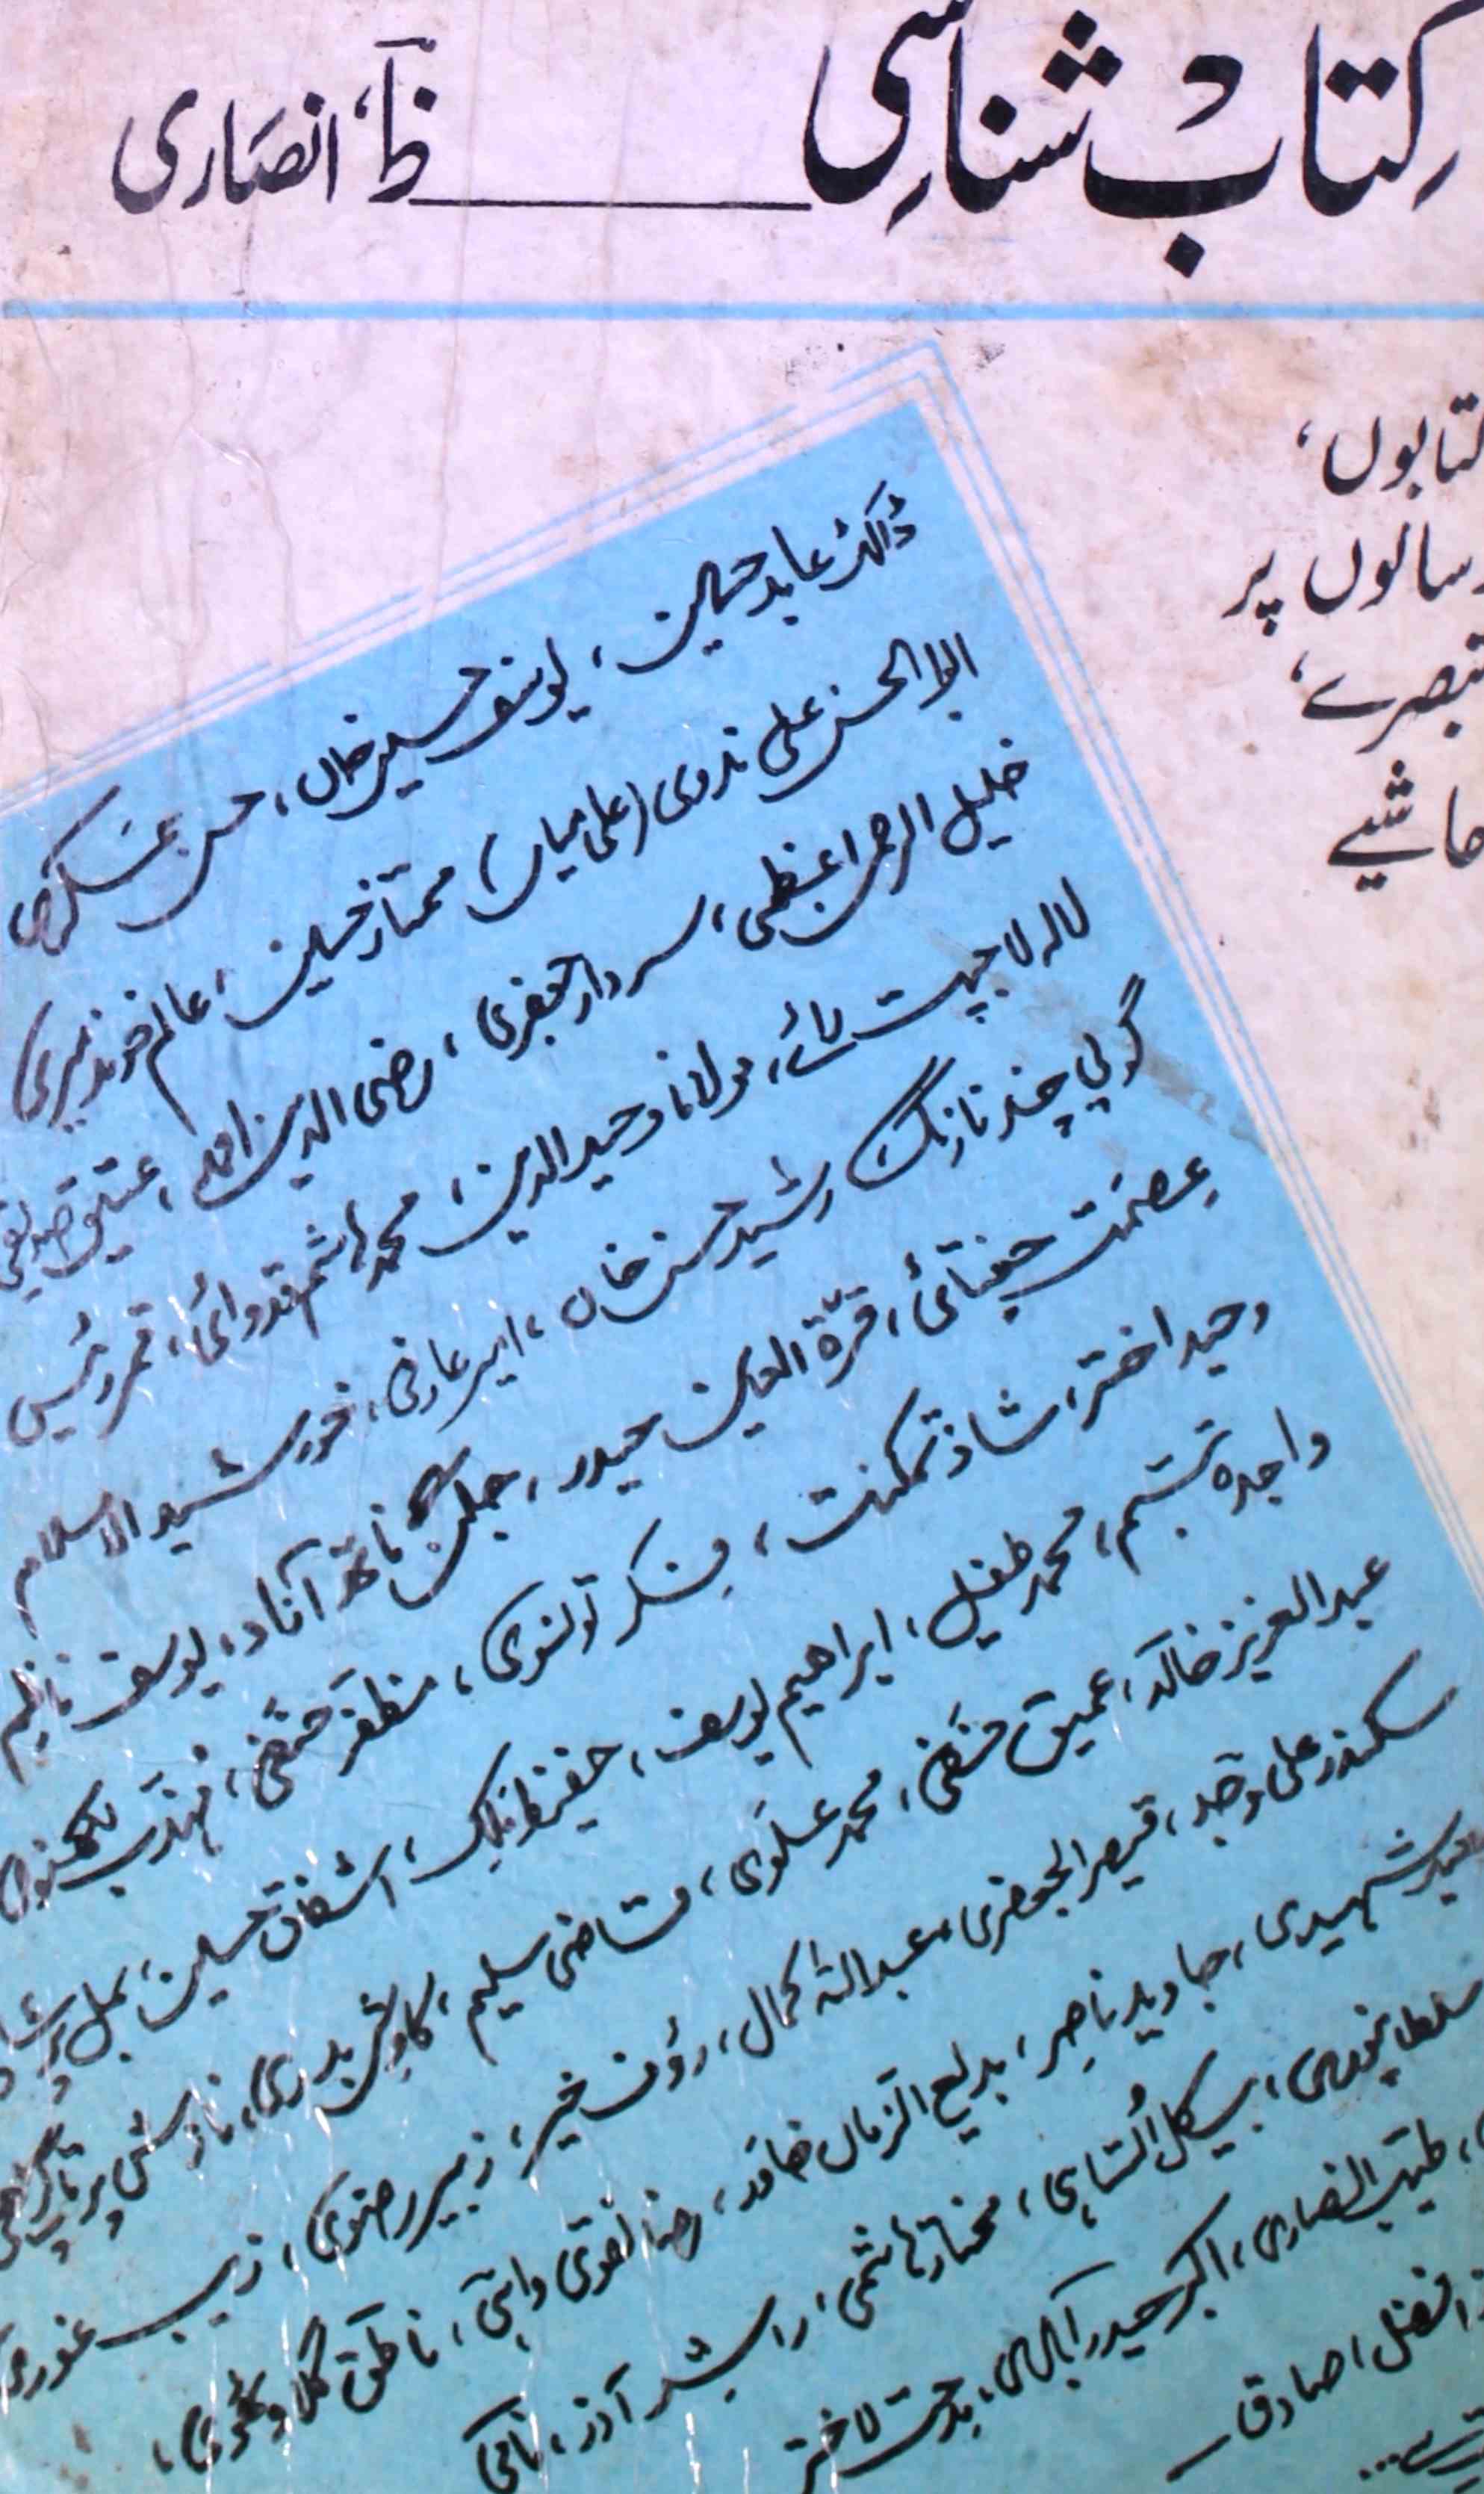 کتاب شناسی ــــــــ ظ، انصاری
کتابوں،
رسالوں پر
تبصرے،
حاشیے
ڈاکٹر عابد حسین، یوسف حسین خاں، حسن عسکری
ابوالحسن علی ندوی (علی میاں) ممتاز حسین، عالم خوندمیری
خلیل الرحمن اعظمی، سردار جعفری، رضی الدین احمد، عتیق صدیقی
لالہ لاجپت رائے، مولانا وحید الدین، محمد ہاشم قدوائی، قمر رئیس
گوپی چند نارنگ رشید حسن خاں، امیر عارفی، خورشید الاسلام
عصمت چغتائی، قرۃ العین حیدر، جگن ناتھ آزاد، یوسف ناظم
وحید اختر، شاذ تمکنت، فکر تونسوی، مظفر حنفی، مہذب لکھنوی
واجدہ تبسم، محمد طفیل، ابراہیم یوسف، حفیظ بنارسی، اشفاق حسین،
عبد العزیز خالد، عمیق حنفی، محمد علوی، قاضی سلیم، کاوش بدری، نازش پرتاپگڑھی
سکندر علی وجد، قیصر الجعفری، عبداللہ کمال، رؤف خیر، زبیر رضوی، زیب غوری
شہیدی، جاوید ناصر، بدیع الزماں خاور، رضا نقوی واہی، ناطق گلاوٹھوی،
سلطانپوری، بیکل اُتساہی، مختار ہاشمی، راشد آذر، نامی
، طیب انصاری، اکبر حیدرآبادی، مدحت الاختر
افضل، صادق ــ